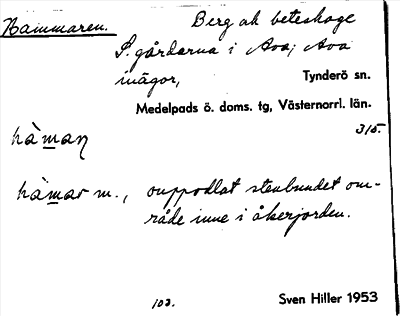 Hammaren. Berg och beteshage
S. gårdarna i Åva; Åva
inägor, Tynderö sn.
Medelpads ö. doms. tg, Västernorrl. län.
315.
hàmaŋ
hàmar m., ouppodlat stenbundet om-
råde inne i åkerjorden.
103. Sven Hiller 1953